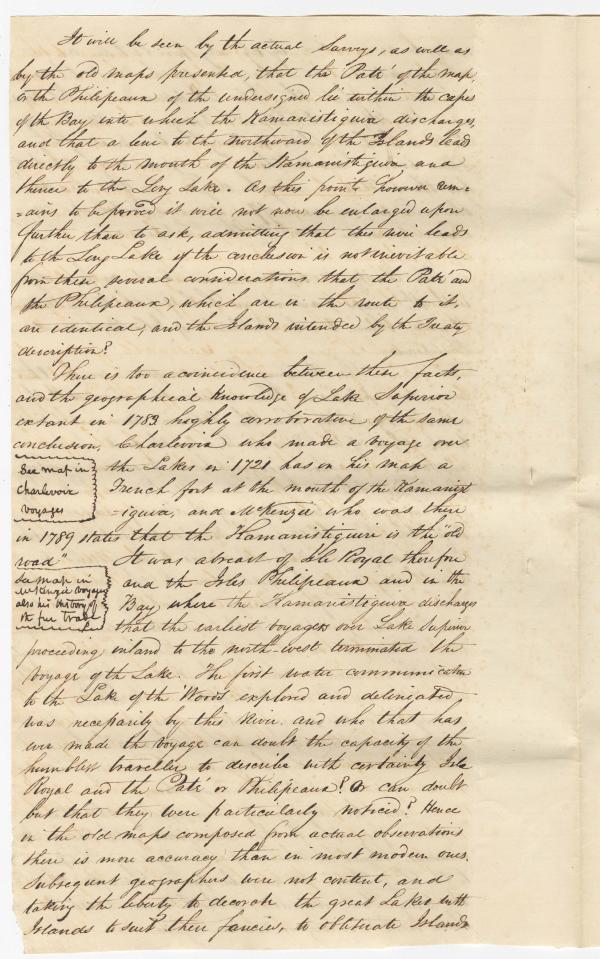 It will be seen by the actual Surveys, as well as
by the old maps presented, that the Paté of the map
& the Philipeaux of the undersigned lie within the capes
of the Bay into which the Kamanistiguia discharges,
and that a line to the northward of the Islands leads
directly to the mouth of the Kamanistiguia and
thence to the Long Lake. As this point however rem=
=ains to be proved it will not now be enlarged upon
further than to ask, admitting that this river leads
to the Long Lake if the conclusion is not inevitable
from these several considerations that the Paté and
the Philipeaux, which are in the route to it,
are identical, and the Islands intended by the Treaty
description?
There is too a coincidence between these facts,
and the geographical knowledge of Lake Superior
extant in 1783 highly corroborative of the same
conclusion. Charlevoix who made a voyage over
See map in
Charlevoix
voyages
the Lakes in 1721 has in his map a
French fort at the mouth of the Kamanist
=iguia, and McKenzie who was there
in 1789 states that the Kamanistiguia is the "old
road"
See map in
McKenzie voyages
also his history of
the fur trade
It was abreast of Isle Royal therefore
and the Isles Philipeaux and in the
Bay where the Kamanistiguia discharges
that the earliest voyagers over Lake Superior
proceeding inland to the north-west terminated the
voyage of the Lake. The first water communication
to the Lake of the Woods explored and delineated
was necessarily by this River. and who that has
ever made the voyage can doubt the capacity of the
humblest traveller to describe with certainty Isle
Royal and the Paté or Philipeaux? Or can doubt
but that they were particularly noticed? Hence
in the old maps composed from actual observations
there is more accuracy than in most modern ones.
Subsequent geographers were not content, and
taking the liberty to decorate the great Lakes with
Islands to suit their fancies, to obliterate Islands